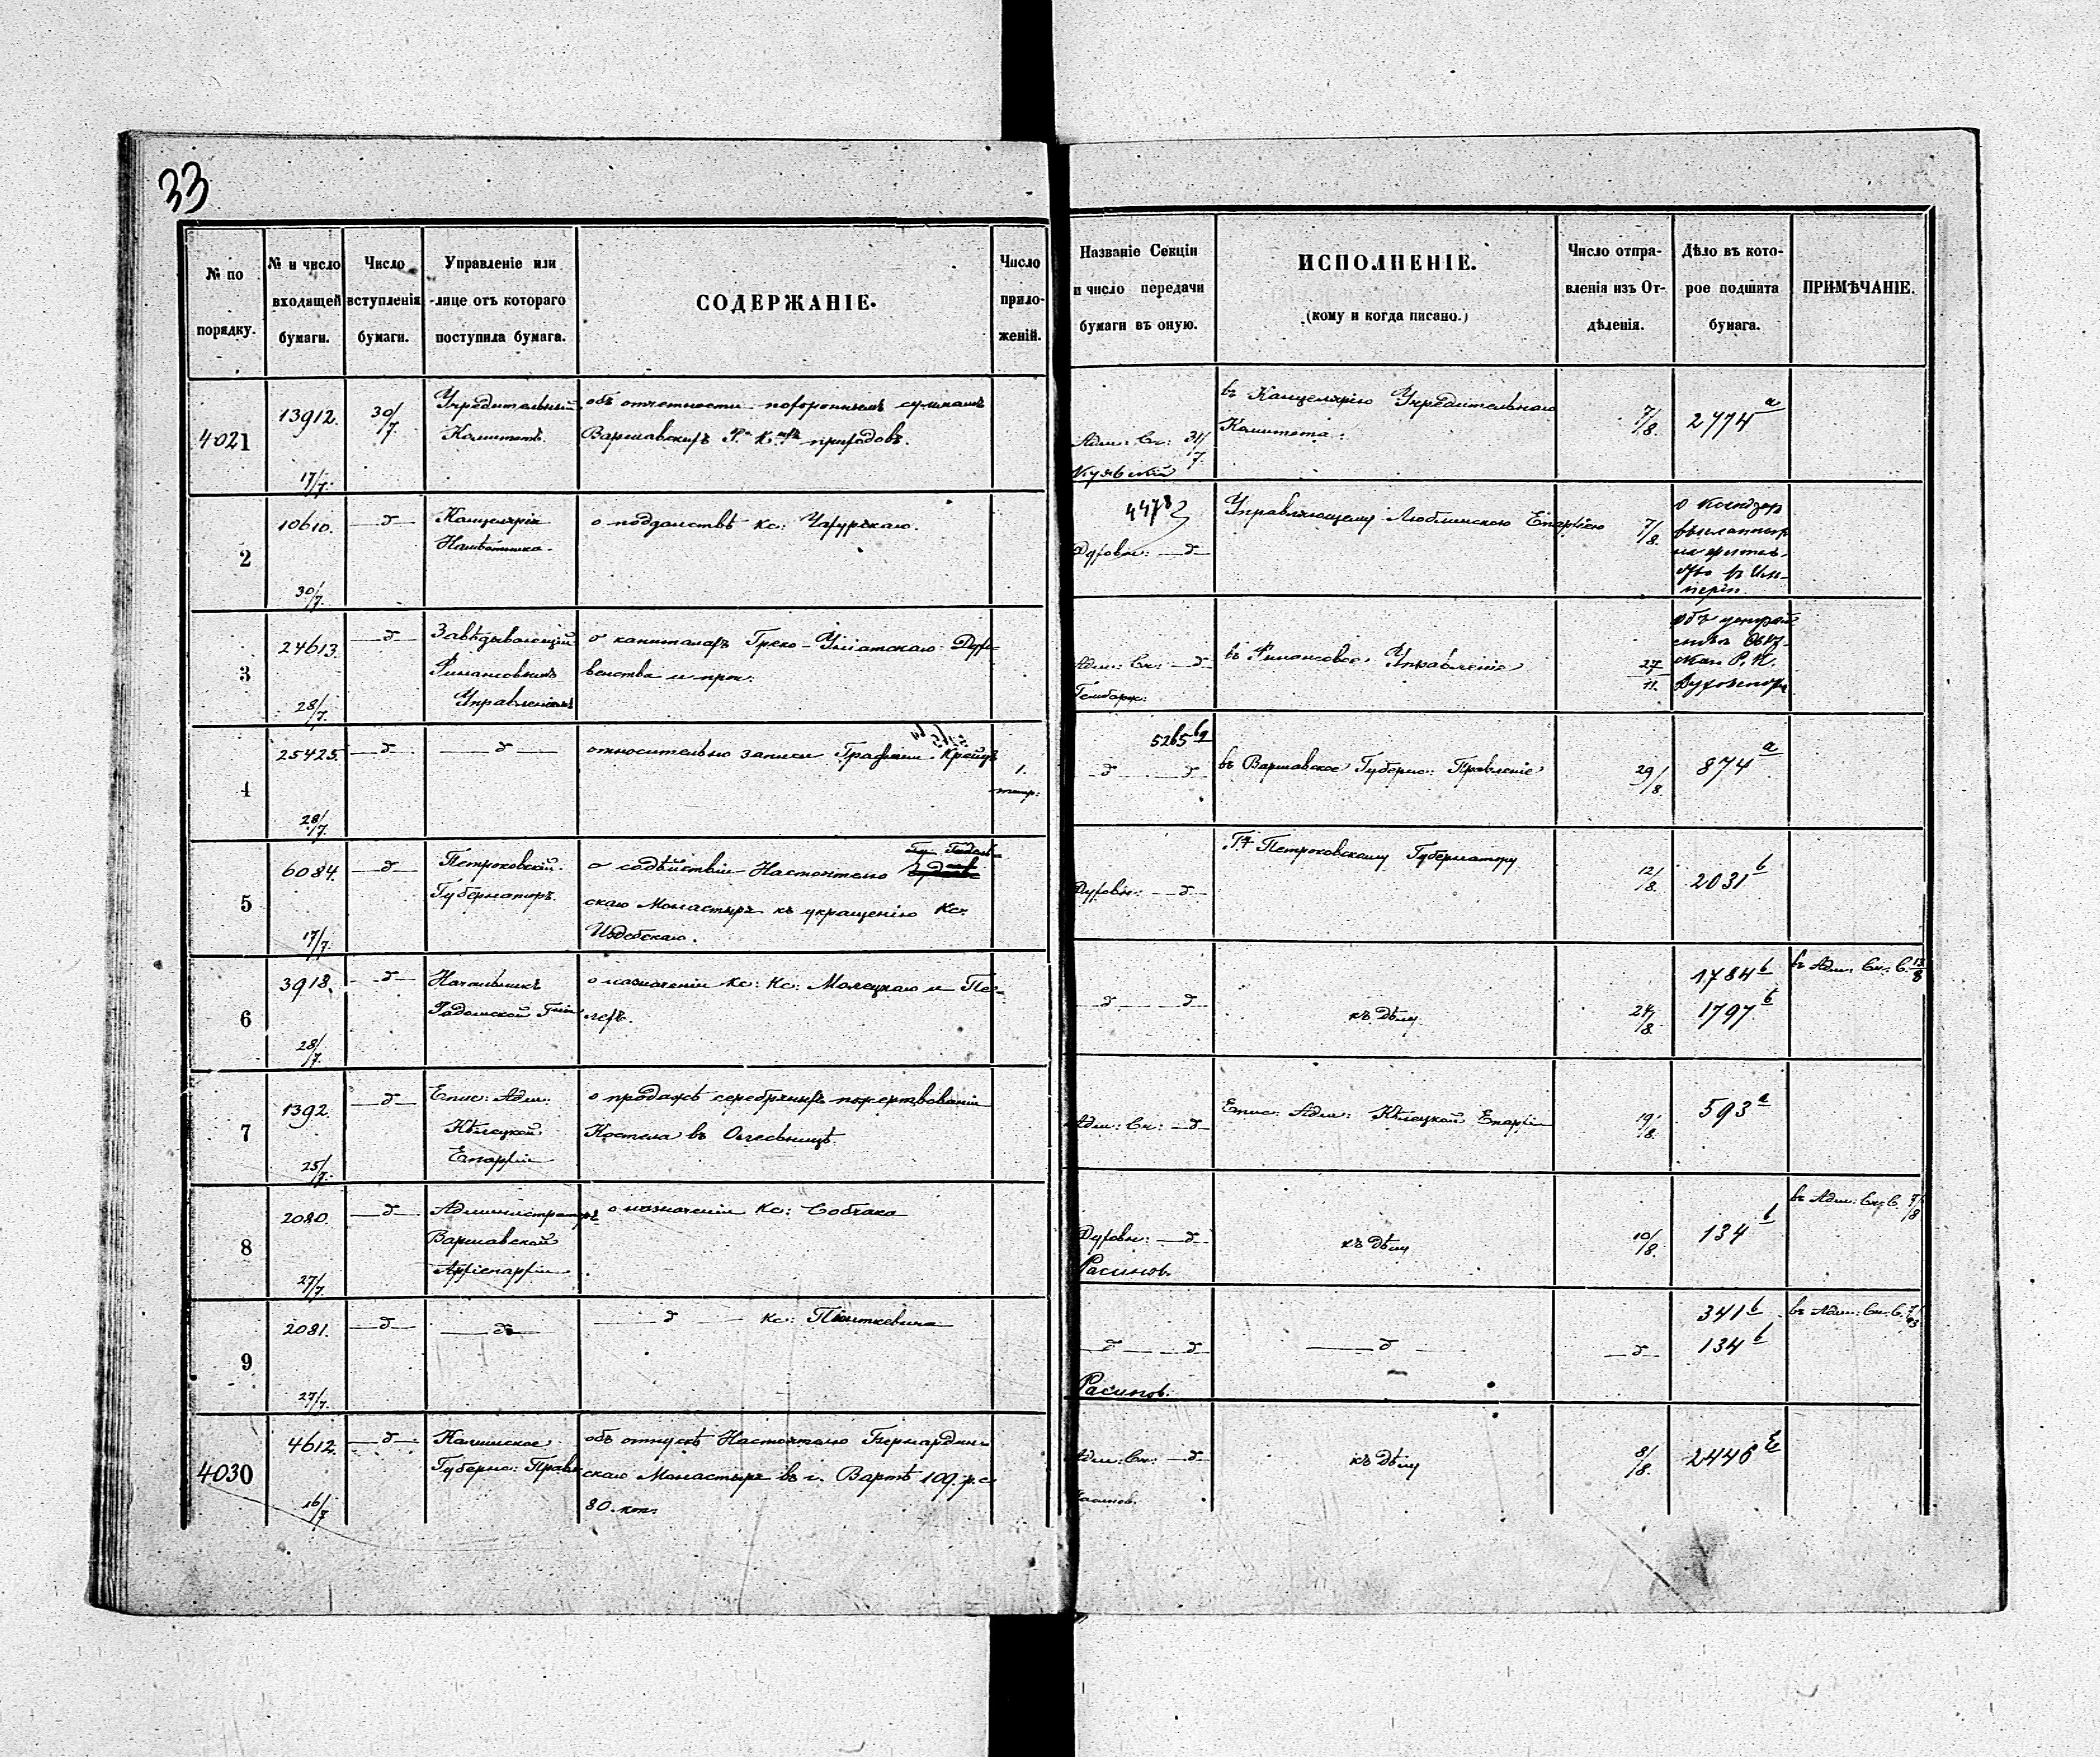 33
№ по порядку.
№ и число входящей бумаги.
Число вступленія бумаги.
Управленіе или лице отъ котораго поступила бумага.
СОДЕРЖАНІЕ.
Число приложеній.
Названіе Секціи и число передачи бумаги въ оную.
ИСПОЛНЕНІЕ.
(кому и когда писано.)
Число отправленія изъ Отдѣленія.
Дѣло въ которое подшита бумага.
ПРИМѢЧАНІЕ.
4021
13912.
17/7.
30/7.
Учредительный
Комитетъ.
объ отчетности похороннымъ суммамъ
Варшавскихъ Р. К. приходовъ.
Адм: Ск: 31/7.
въ Канцелярію Учредительнаго
Комитета.
7/8.
2774 а
2
10610.
30/7.
д
Канцелярія
Намѣстника.
о подданствѣ Кс:
4478
Духовн: д
Управляющему Люблинскою Епархіею
7/8.
3
24613.
28/7.
д
Завѣдывающій
Финансовымъ
Управленіемъ
о капиталахъ Греко-Уніатскаго Духо-
венства и проч.
Адм: Ск: д
въ Финансовое Управленіе
27/11.
объ
Р. К.
4
25425.
28/7.
д
д
относительно записи Графини Крейцъ
1.
5265
д д
въ Варшавское Губерн: Правленіе
29/8.
874 а
5
6084.
17/7.
д
Петроковскій
Губернаторъ.
о содѣйствіи Настоятелю
скаго Монастыря къ укращенію Кс:
Издебскаго.
Духовн: д
Петроковскому Губернатору
12/8.
2031 b
6
3918.
28/7.
д
Начальникъ
Радомской
о назначеніи Кс: Кс: Молецкаго и
д д
къ дѣлу
24/8.
1784 b
1797 b
въ Адм: Ск: С. 13/8
7
1392.
25/7.
д
Епис: Адм:
Кѣлецкой
Епархіи
о продажѣ серебряныхъ пожертвованій
Костела въ Олесьницѣ.
Адм: Ск: д
Епис: Адм: Кѣлецкой Епархіи
19/8.
593 а
8
2080.
27/7.
д
Администраторъ
Варшавской
Архіепархіи
о назначеніи Кс: Собчака
Духовн: д
Расинов.
къ дѣлу
10/8.
134 b
въ Адм: Ск: С. 7/8
9
2081.
27/7.
д
д
д Кс: Піонткевича
д д
Расинов.
д
д
341 b
134 b
въ Адм: Ск: С.
4030
4612.
16/7
д
Калишское
Губерн: Правл
объ отпускѣ Настоятелю Бернардин-
скаго Монастыря въ г. Вартѣ 109. р. с.
80. коп.
Адм: Ск: д
къ дѣлу
8/8.
2446